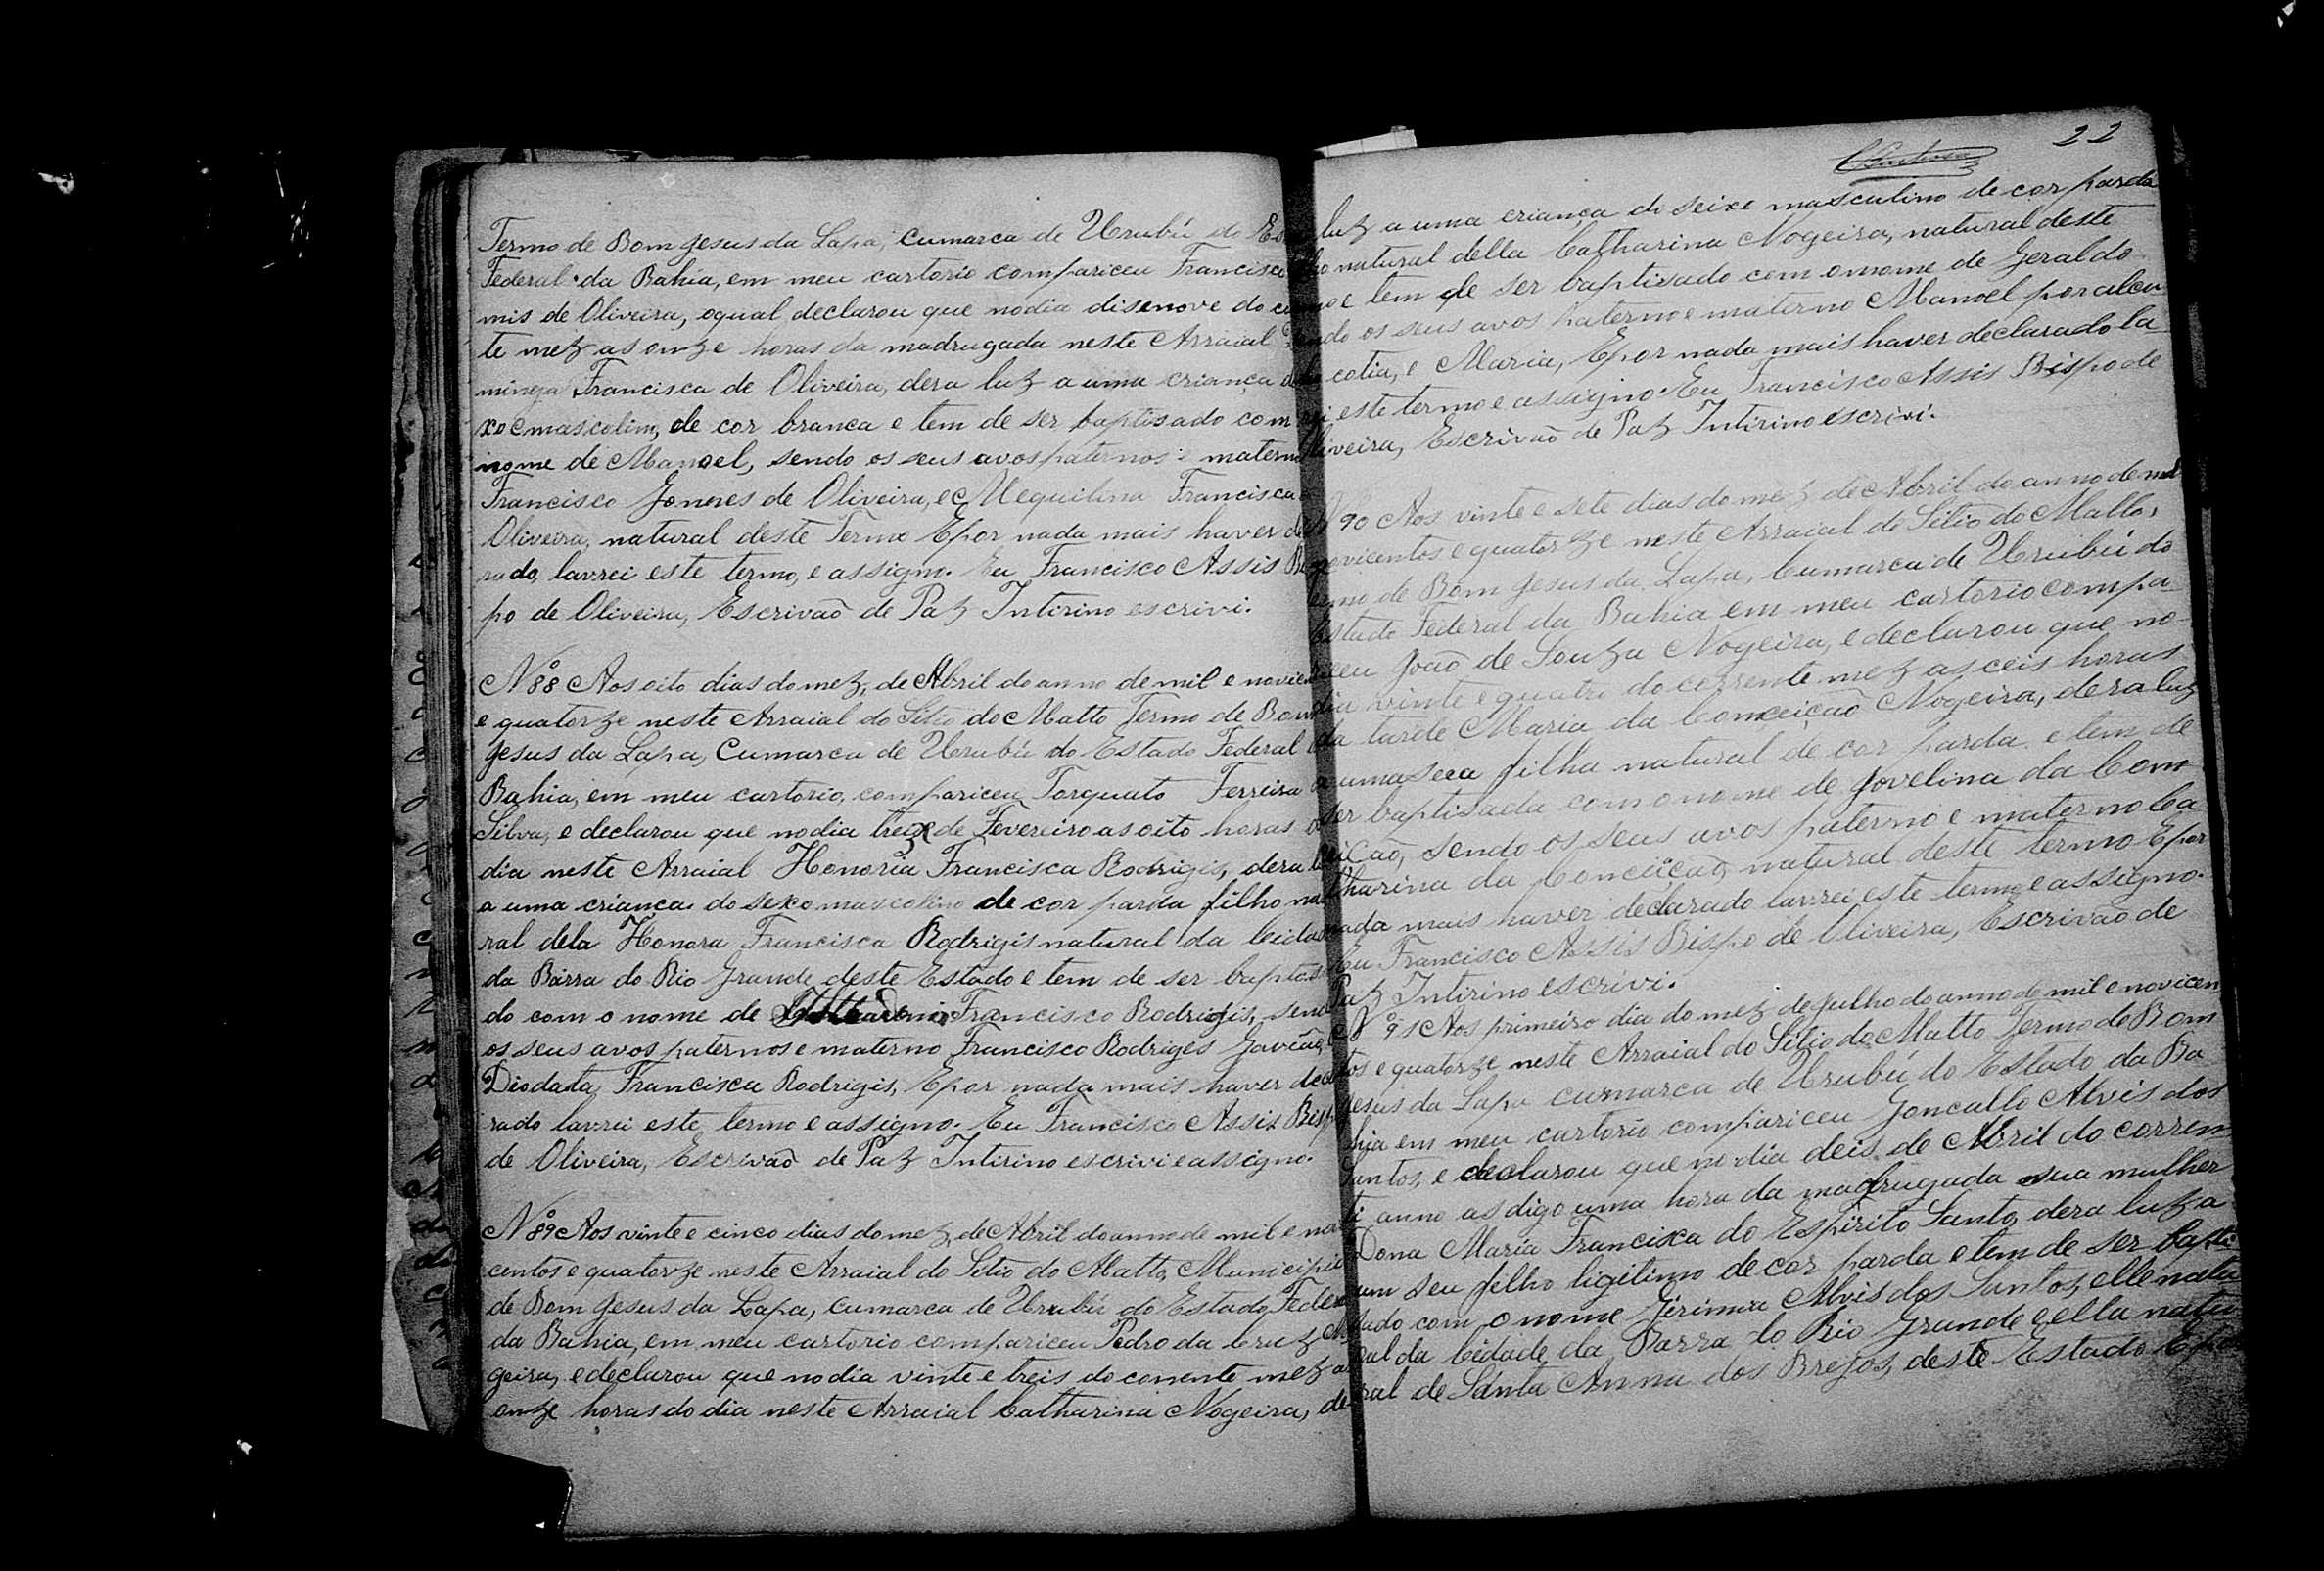 Termo de Bom Jesus da Lapa, Cumarca de Urubú do Es
Federal da Bahia, em meu cartorio compariceu Francisco
mis de Oliveira, oqual declarou que nodia disenove do
te mez as onze horas da madrugada neste Arraial
Francisca de Oliveira, dera luz a uma criança
xo mascolin, de cor branca e tem de ser baptisado com
nome de Manoel, sendo os seus avos paternos e matern
Francisco Gomes de Oliveira, e Mequilina Francisca
Oliveira, natural deste Termo Epor nada mais haver de
rado, lavrei este termo, e assigno. Eu Francisco Assis Bis
po de Oliveira, Escrivaõ de Paz Intirino escrivi.
Nº 88 Aos oito dias do mez, de Abril do anno de mil e novicen
e quatorze neste Arraial do Sitio do Matto Termo de Bom
Jesus da Lapa, Cumarca de Urubú do Estado Federal
Bahia, em meu cartorio compariceu Torquato Ferreira
Silva, e declarou que nodia treze de Fevereiro as oito horas
dia neste Arraial Honoria Francisca Rodrigis, dera
a uma criança do sexo mascolino de cor parda filho na
ral dela Honora Francisca Rodrigis natural da Cida
da Barra do Rio Grande deste Estado e tem de ser baptis
do com o nome de Francisco Rodrigis, send
os seus avos paternos e materno Francisco Rodriges Gavião,
Diodata Francisca Rodrigis, Epor nada mais haver decla
rado lavrei este termo e assigno. Eu Francisco Assis Bisp
de Oliveira, Escrivaõ de Paz Intirino escrivi e assigno.
Nº 89 Aos vinte e cinco dias do mez, de Abril do anno de mil e no
centos e quatorze neste Arraial do Sitio do Matto, Municipi
de Bom Jesus da Lapa, Cumarca de Urubú do Estado Fede
da Bahia, em meu cartorio compariceu Pedro da Cruz No
geira, e declarou que no dia vinte e treis do corrente mez as
onze horas do dia neste Arraial Catharina Nogeira, de
22
luz a uma criança do seixo masculino de cor parda
natural della Catharina Nogeira, natural deste
e tem de ser baptisado com o nome de Geraldo
os seus avos paterno e materno Manoel por alcu
cotia, e Maria, Epor nada mais haver declarado la
este termo e assigno. Eu Francisco Assis Bispo de
Oliveira, Escrivaõ de Paz Intirino escrivi.
Nº 90 Aos vinte e sete dias do mez de Abril do anno de mil
novicentos e quatorze neste Arraial do Sitio do Matto,
Termo de Bom Jesus da Lapa, Cumarca de Urubú do
Estado Federal da Bahia em meu cartorio compa
riceu João de Souza Nogeira, e declarou que no
dia vinte e quatro do corrente mez as ceis horas
da tarde Maria da Conceição Nogeira, dera luz
a uma sua filha natural de cor parda e tem de
ser baptisada com o nome de Jovelina da Con
ceição, sendo os seus avos paterno e materno Ca
tharina da Conceicão, natural deste termo Epor
nada mais haver declarado lavrei este termo e assigno.
Eu Francisco Assis Bispo de Oliveira, Escrivaõ de
Paz Intirino escrivi.
Nº 91 Aos primeiro dia do mez de Julho do anno de mil e novicen
tos e quatorze neste Arraial do Sitio do Matto Termo de Bom
Jesus da Lapa Cumarca de Urubú do Estado da Ba
hia em meu cartorio compariceu Goncallo Alvis dos
Santos, e declarou que no dia deis de Abril do corren
ti anno as digo uma hora da madrugada sua mulher
Dona Maria Francisca do Espirito Santo, dera luz a
um seu filho ligitimo de cor parda e tem de ser bapti
sado com o nome Jirimia Alvis dos Santos, elle natu
ral da Cidade da Barra do Rio Grande e ella natu
ral de Santa Anna dos Brejos, deste Estado Epor